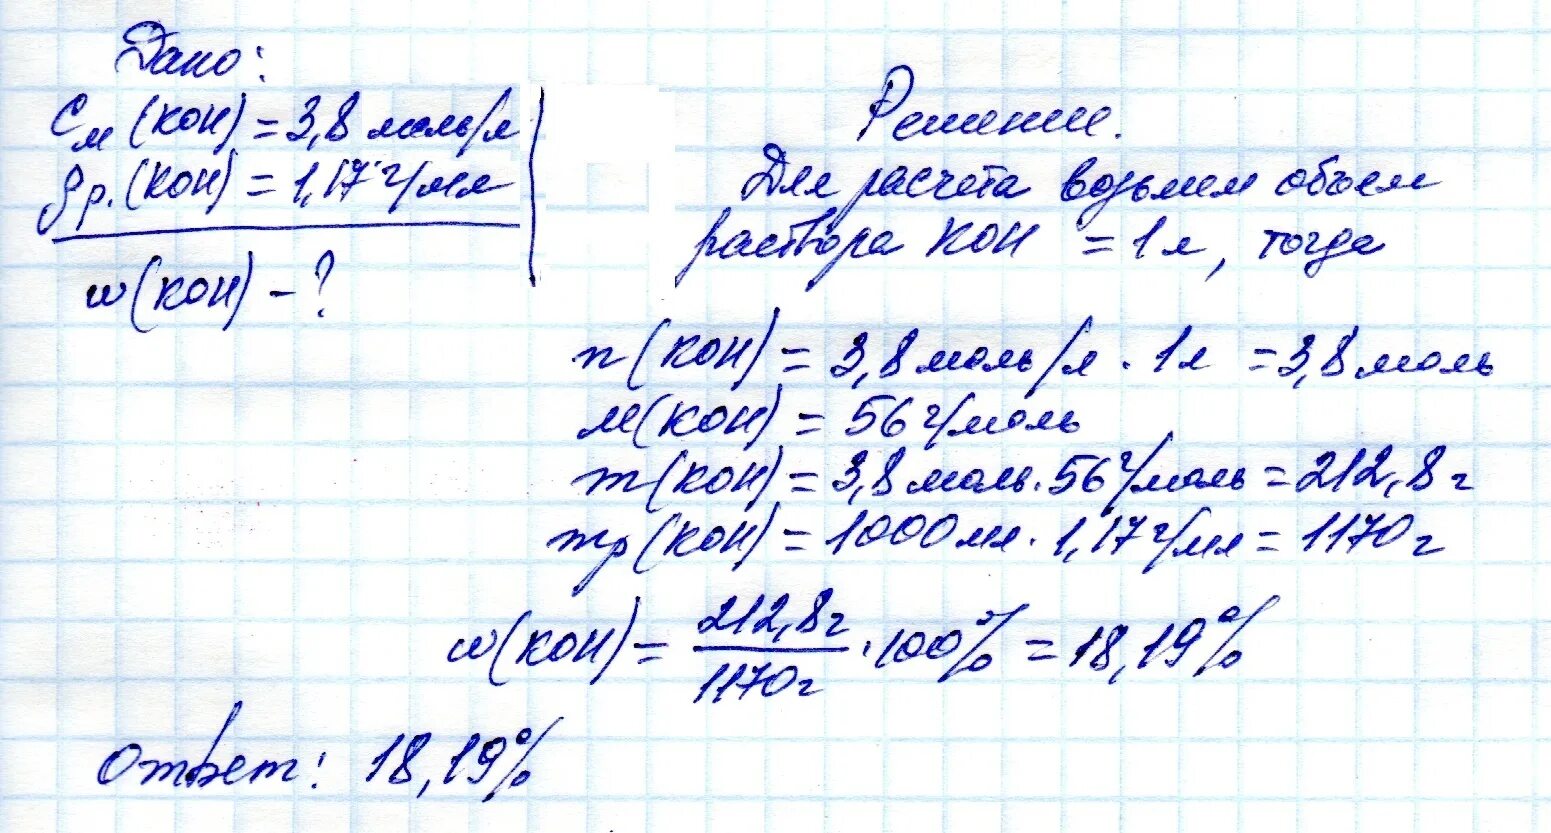 Дано:
См(КОН) = 3,8 моль/л
ρр.(КОН) = 1,17 г/мл
w(КОН) - ?
Решение.
Для расчета возьмем объем
раствора КОН = 1л, тогда
n(КОН) = 3,8 моль/л · 1л = 3,8 моль
М(КОН) = 56 г/моль
m(КОН) = 3,8 моль · 56 г/моль = 212,8 г
mр(КОН) = 1000 мл · 1,17 г/мл = 1170 г
w(КОН) = 212,8 г / 1170 г · 100% = 18,19%
Ответ: 18,19%